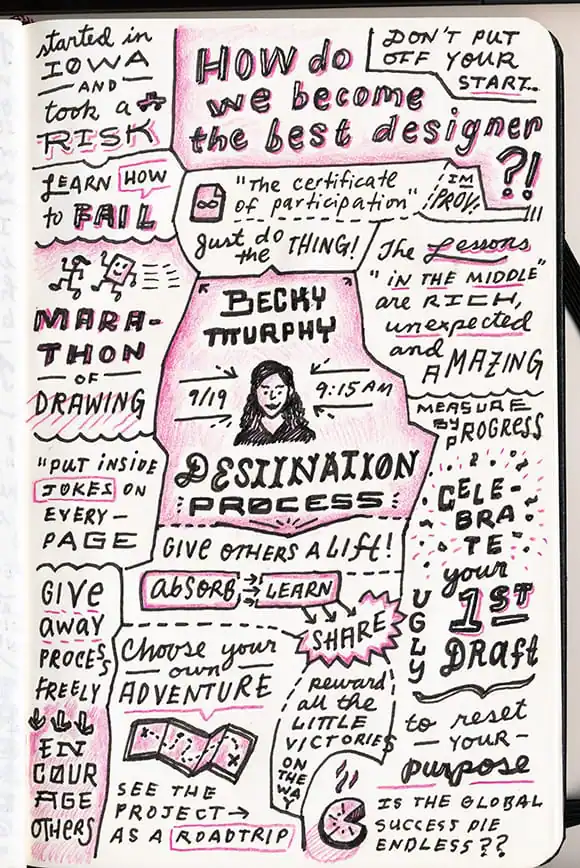 started in
IOWA
— AND —
took a
RISK
HOW do
we become
the best designer
?!
DON'T PUT
OFF YOUR
START...
LEARN HOW
to FAIL
"The certificate
of participation"
IM
PROV!
just do
the THING!
The Lessons
"IN THE MIDDLE"
are RICH,
unexpected
and
AMAZING
MARA-
THON
— OF —
DRAWING
BECKY
MURPHY
9/19
9:15 AM
DESTINATION
:PROCESS:
MEASURE
BY PROGRESS
CELE-
BRA
TE
your
UGLY
1ST
DRAFT
"PUT INSIDE
JOKES ON
EVERY-
PAGE
GIVE OTHERS A LIFT!
ABSORB
LEARN
SHARE
GIVE
away
PROCESS
FREELY
EN
COUR
AGE
OTHERS
Choose your
— own —
ADVENTURE
SEE THE
PROJECT→
AS A ROADTRIP
reward
all the
LITTLE
VICTORIES
ON
THE
WAY
to reset
— YOUR —
purpose
IS THE GLOBAL
SUCCESS PIE
ENDLESS??